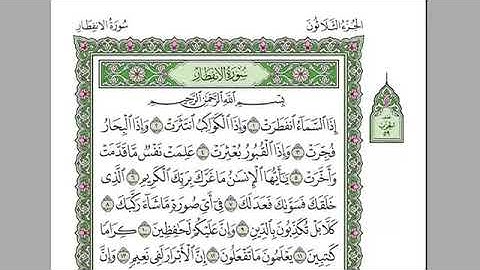 الجزء الثلاثون
سورة الانفطار
سُورَةُ الانفِطَارِ
بِسْمِ اللَّهِ الرَّحْمَٰنِ الرَّحِيمِ
إِذَا السَّمَاءُ انفَطَرَتْ ١ وَإِذَا الْكَوَاكِبُ انتَثَرَتْ ٢ وَإِذَا الْبِحَارُ
فُجِّرَتْ ٣ وَإِذَا الْقُبُورُ بُعْثِرَتْ ٤ عَلِمَتْ نَفْسٌ مَّا قَدَّمَتْ
وَأَخَّرَتْ ٥ يَا أَيُّهَا الْإِنسَانُ مَا غَرَّكَ بِرَبِّكَ الْكَرِيمِ ٦ الَّذِي
خَلَقَكَ فَسَوَّىٰكَ فَعَدَلَكَ ٧ فِي أَيِّ صُورَةٍ مَّا شَاءَ رَكَّبَكَ ٨
كَلَّا بَلْ تُكَذِّبُونَ بِالدِّينِ ٩ وَإِنَّ عَلَيْكُمْ لَحَافِظِينَ ١٠ كِرَامًا
كَاتِبِينَ ١١ يَعْلَمُونَ مَا تَفْعَلُونَ ١٢ إِنَّ الْأَبْرَارَ لَفِي نَعِيمٍ ١٣ وَإِنَّ
الحزب
٥٩